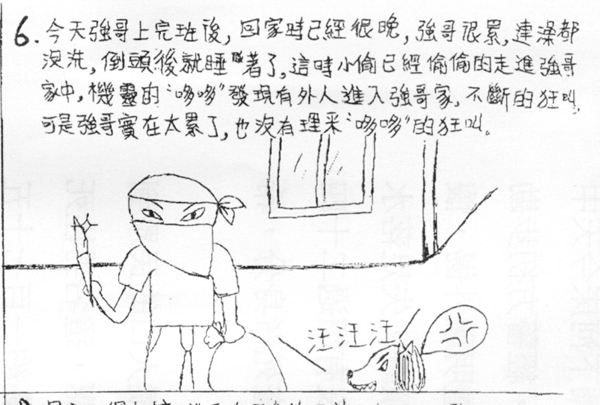 6. 今天強哥上完班後, 回家時已經很晚, 強哥很累, 連澡都
沒洗, 倒頭後就睡著了, 這時小偷已經偷偷的走進強哥
家中, 機靈的“哆哆”發現有外人進入強哥家, 不斷的狂叫,
可是強哥實在太累了, 也沒有理采“哆哆”的狂叫。
汪汪汪